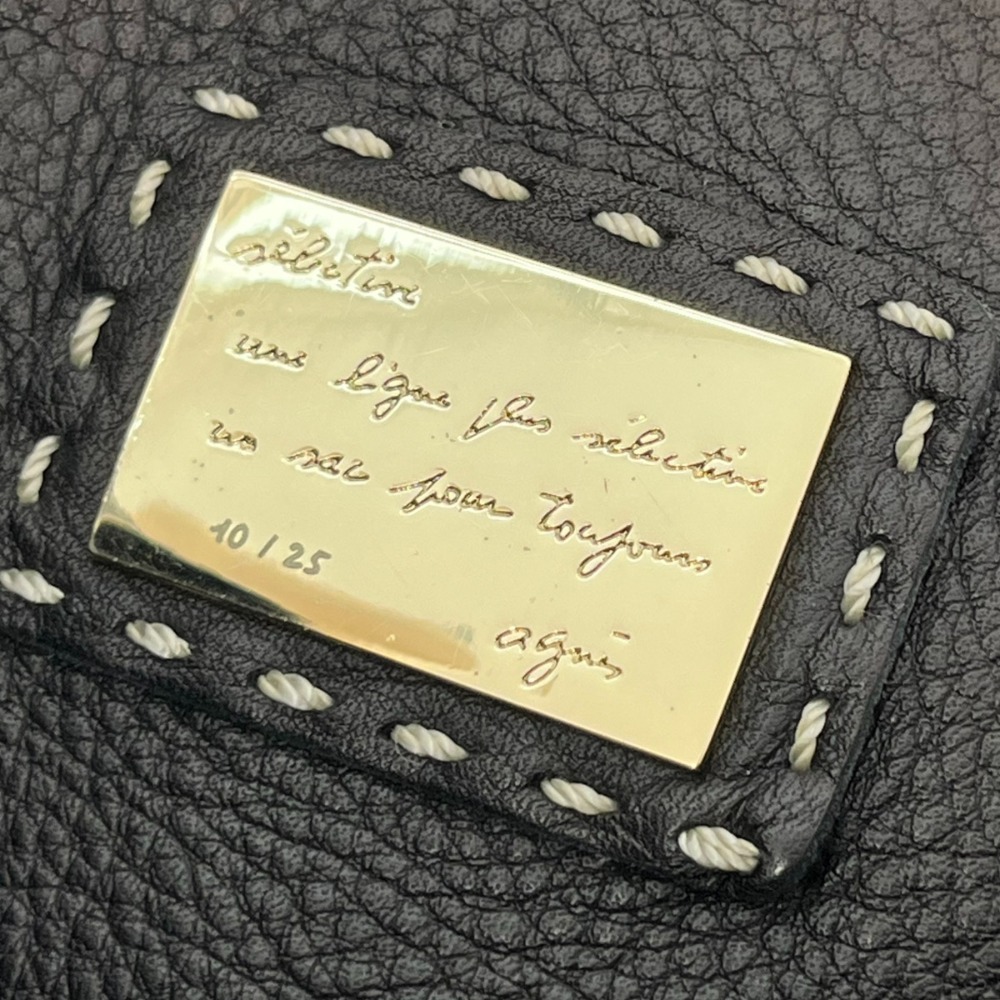 sélective
une ligne plus sélective
un sac pour toujours
10/25
agnès